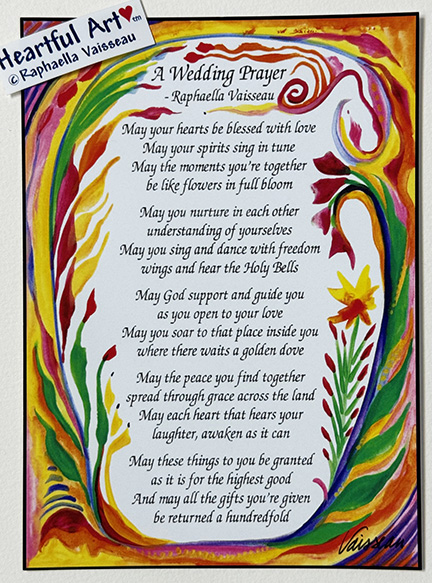 Heartful Art™
© Raphaella Vaisseau
A Wedding Prayer
- Raphaella Vaisseau
May your hearts be blessed with love
May your spirits sing in tune
May the moments you're together
be like flowers in full bloom
May you nurture in each other
understanding of yourselves
May you sing and dance with freedom
wings and hear the Holy Bells
May God support and guide you
as you open to your love
May you soar to that place inside you
where there waits a golden dove
May the peace you find together
spread through grace across the land
May each heart that hears your
laughter, awaken as it can
May these things to you be granted
as it is for the highest good
And may all the gifts you're given
be returned a hundredfold
Vaisseau